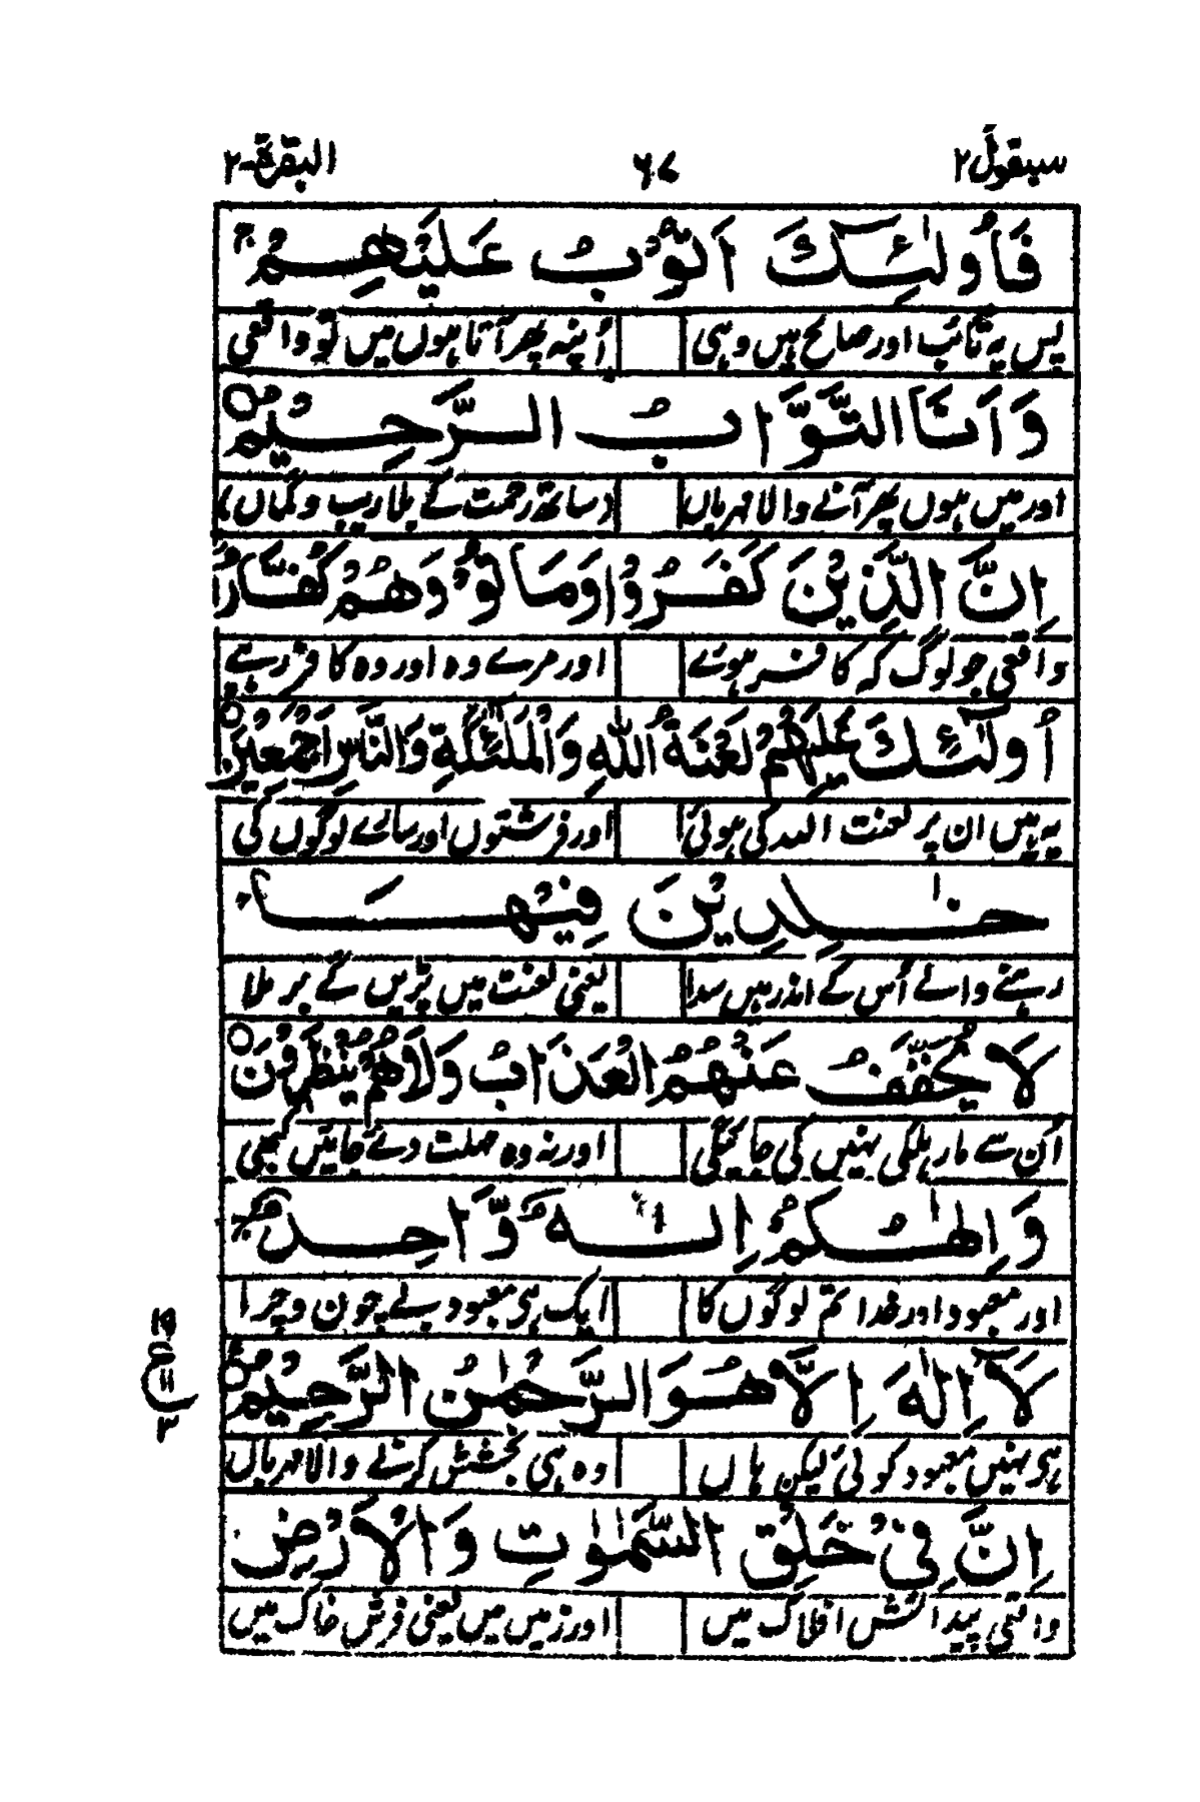 سیقول ٢ ٦٧ البقرة-٢
فَاُولٰٓئِكَ اَتُوْبُ عَلَيْهِمْ ۚ
پس یہ تائب اور صالح ہیں وہی اُپنہ پھر آتا ہوں میں تو واقعی
وَاَنَا التَّوَّابُ الرَّحِيْمُ ○
اور میں ہوں پھر آنے والا مہرباں (ساتھ رحمت کے بلا ریب و گماں)
اِنَّ الَّذِيْنَ كَفَرُوْا وَمَاتُوْا وَهُمْ كُفَّارٌ
واقعی جو لوگ کہ کافر ہوئے اور مرے وہ اور وہ کافر رہے
اُولٰٓئِكَ عَلَيْهِمْ لَعْنَةُ اللّٰهِ وَالْمَلٰٓئِكَةِ وَالنَّاسِ اَجْمَعِيْنَ ○
یہ ہیں ان پر لعنت اللہ کی ہوئی اور فرشتوں اور سارے لوگوں کی
خٰلِدِيْنَ فِيْهَا ۚ
رہنے والے اُس کے اندر ہیں سدا یعنی لعنت میں پڑیں گے بر ملا
لَا يُخَفَّفُ عَنْهُمُ الْعَذَابُ وَلَا هُمْ يُنْظَرُوْنَ ○
اُن سے مار ہلکی نہیں کی جائیگی اور نہ وہ مہلت دئے جائیں کبھی
وَاِلٰهُكُمْ اِلٰهٌ وَّاحِدٌ ۚ
اور معبود اور خدا تم لوگوں کا ایک ہی معبود بے چون و چرا
لَآ اِلٰهَ اِلَّا هُوَ الرَّحْمٰنُ الرَّحِيْمُ ○
ہی نہیں معبود کوئی لیکن ہاں وہ ہی بخشش کرنے والا مہرباں
١٩
ع
١١
٣
اِنَّ فِيْ خَلْقِ السَّمٰوٰتِ وَالْاَرْضِ
واقعی پیدائش افلاک میں اور زمیں میں یعنی فرش خاک میں